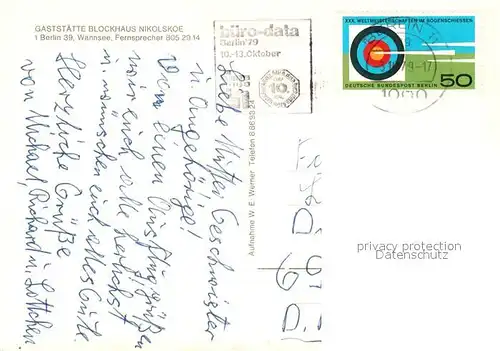 GASTSTÄTTE BLOCKHAUS NIKOLSKOE
1 Berlin 39, Wannsee, Fernsprecher 805 29 14
büro-data
Berlin '79
10.-13. Oktober
10.
XXX. WELTMEISTERSCHAFTEN IM BOGENSCHIESSEN
DEUTSCHE BUNDESPOST BERLIN
50
BERLIN
-17
1000
Liebe Mutter, Geschwister
u. Angehörige!
Von einem Ausflug grüßen
wir euch alle herzlichst
u. wünschen euch alles Gute.
Herzliche Grüße
von Michael, Richard u. Lottchen
Aufnahme W. E. Werner Telefon
privacy protection
Datenschutz